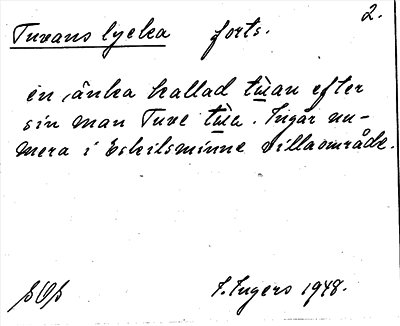 2.
Tuvans lycka forts.
en änka kallad tùan efter
sin man Tuve tùa. Ingår nu-
mera i Eskilsminne villaområde.
I. Ingers 1948.